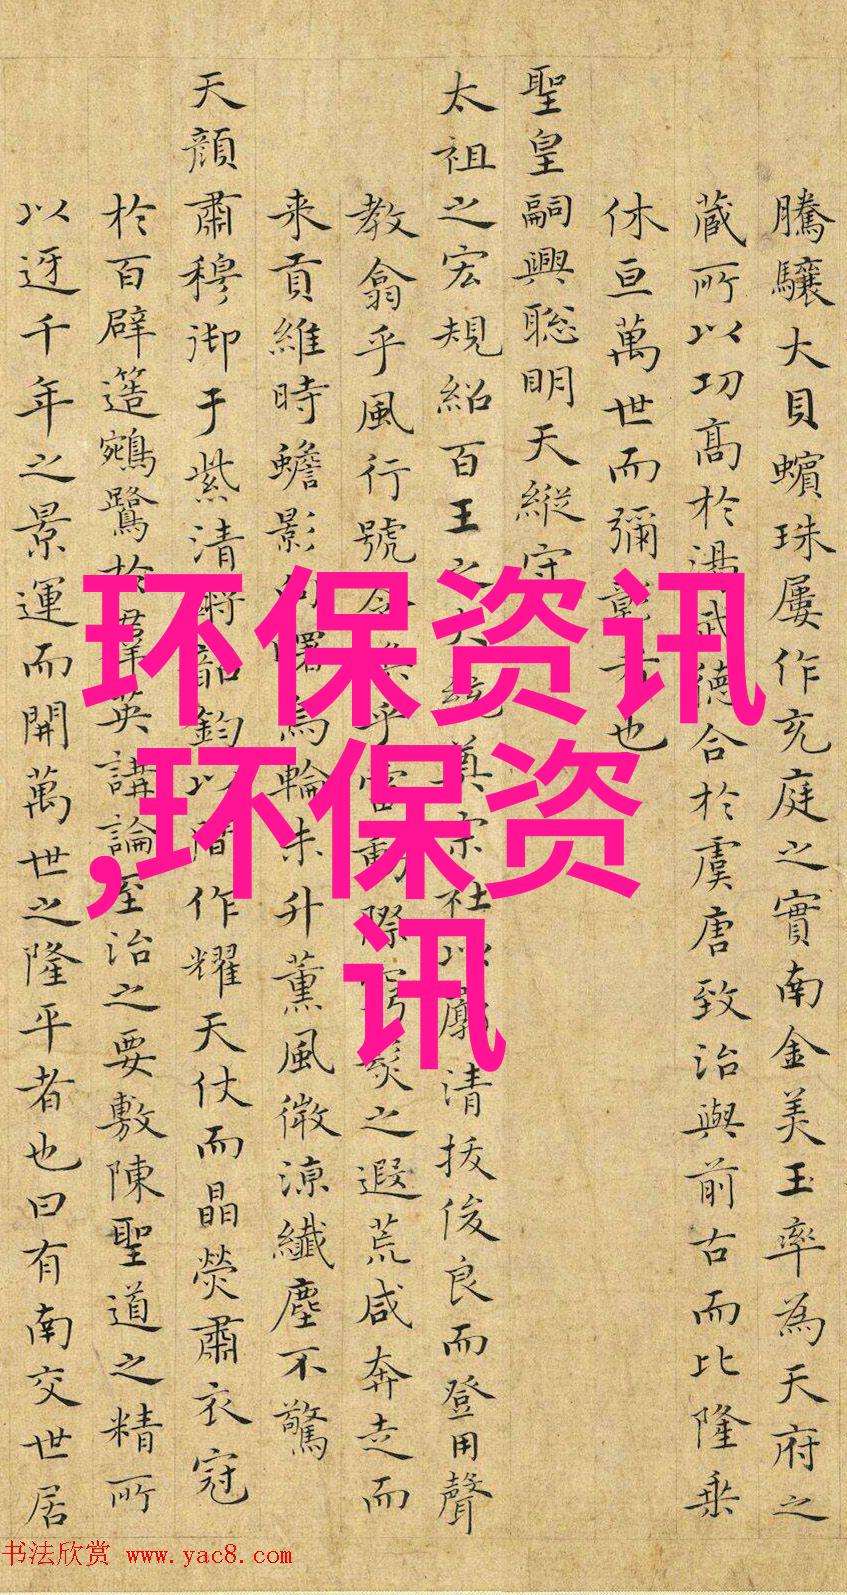 騰驤大貝蠙珠屢作充庭之實南金美玉率為天府之
藏所以功高於湯武德合於虞唐致治與前古而比隆乘
休亘萬世而彌彰者也
聖皇嗣興聡明天縱守
太祖之宏規紹百王之大統奠宗社以廓清拔俊良而登用聲
教翕乎風行號令乎雷動際窮髮之遐荒咸奔走而
来貢維時蟾影向曙烏輪未升薰風微涼纖塵不驚
天顔肅穆御于紫清韶鈞以諧作耀天仗而晶熒肅衣冠
於百辟簉鵷鷺於羣英講論至治之要敷陳聖道之精所
以迓千年之景運而開萬世之隆平者也曰有南交世居
环保资讯
,环保资
讯
书法欣赏 www.yac8.com